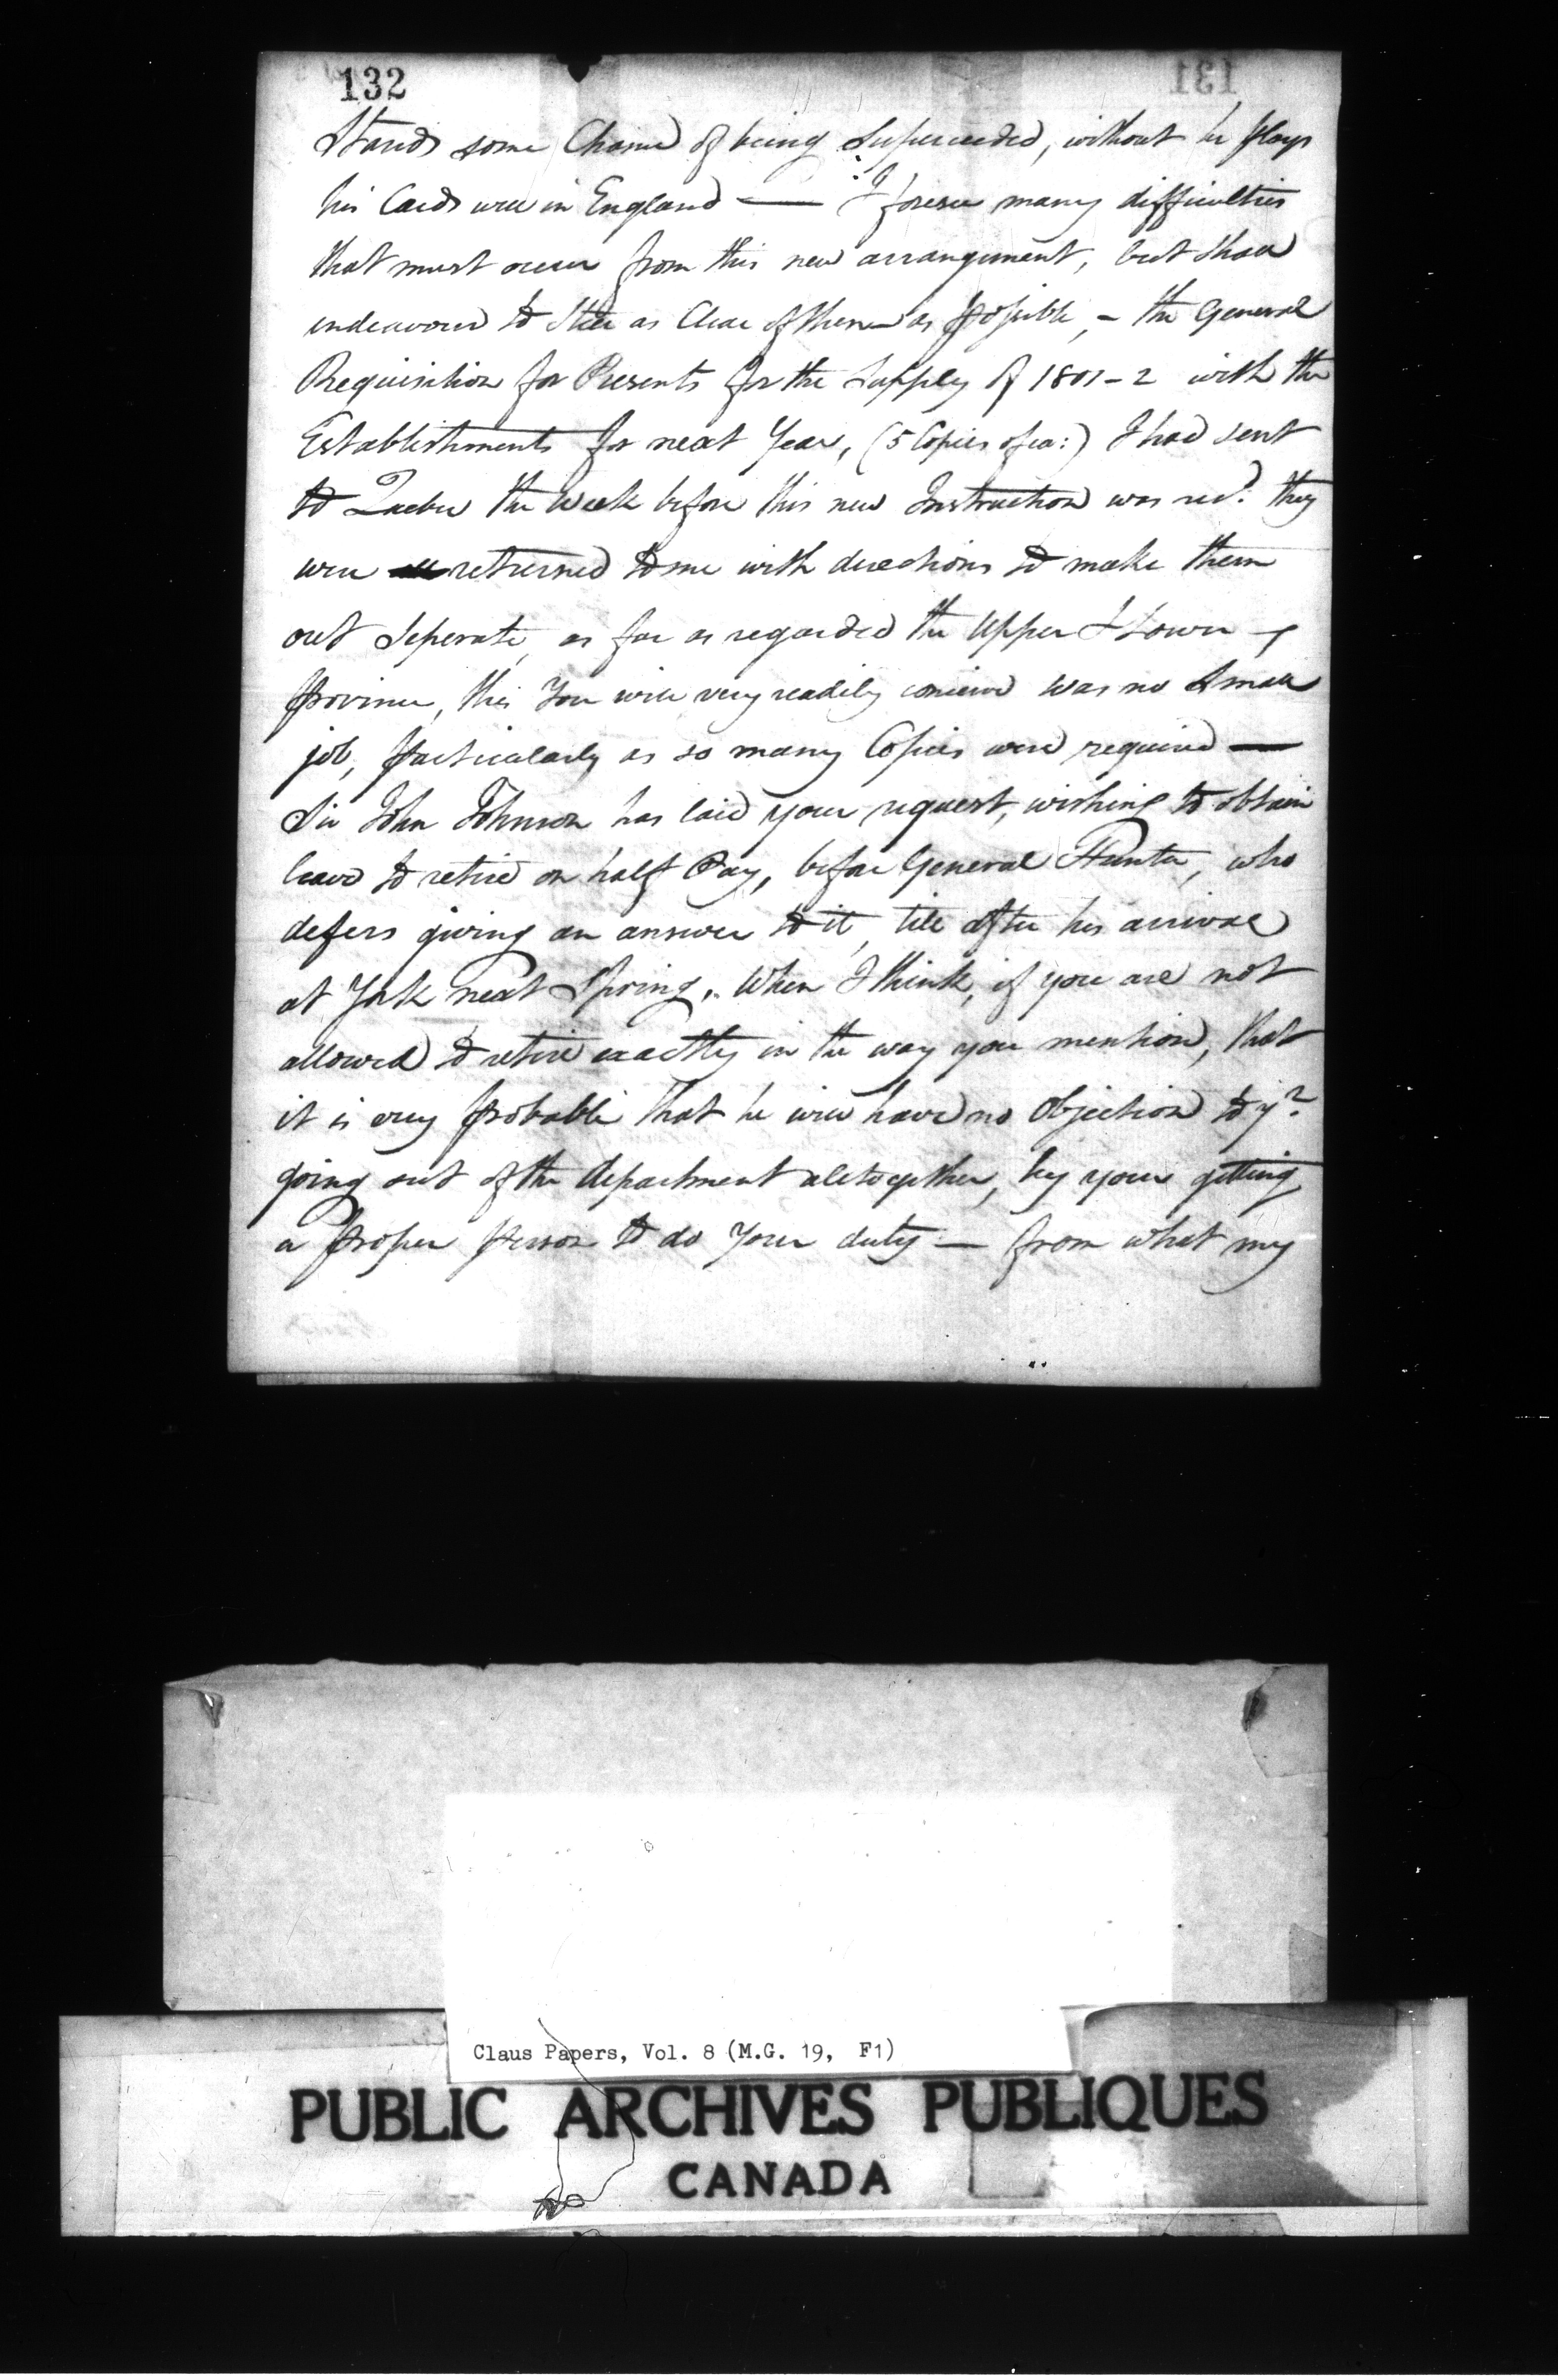 132
131
Stands some Chance of being Superceeded, without he plays
his Cards well in England — I foresee many difficulties
that must occur from this new arrangement, but shall
endeavour to Steer as Clear of them as possible, – the General
Requisition for Presents for the Supply of 1801–2 with the
Establishments for next Year, (5 Copies of ea:) I had sent
to Quebec the Week before this new Instruction was recd. they
were returned to me with directions to make them
out Seperate, as far as regarded the Upper & Lower
province, this You will very readily conceive was no Small
job, particularly as so many Copies were required —
Sir John Johnson has laid your request, wishing to obtain
leave to retire on half Pay, before General Hunter, who
defers giving an answer to it, till after his arrival
at York next Spring, When I think, if you are not
allowed to retire exactly in the way you mention, that
it is very probable that he will have no Objection to yr
going out of the department altogether, by your getting
a proper person to do Your duty — from what my
Claus Papers, Vol. 8 (M.G. 19, F1)
PUBLIC ARCHIVES PUBLIQUES
CANADA